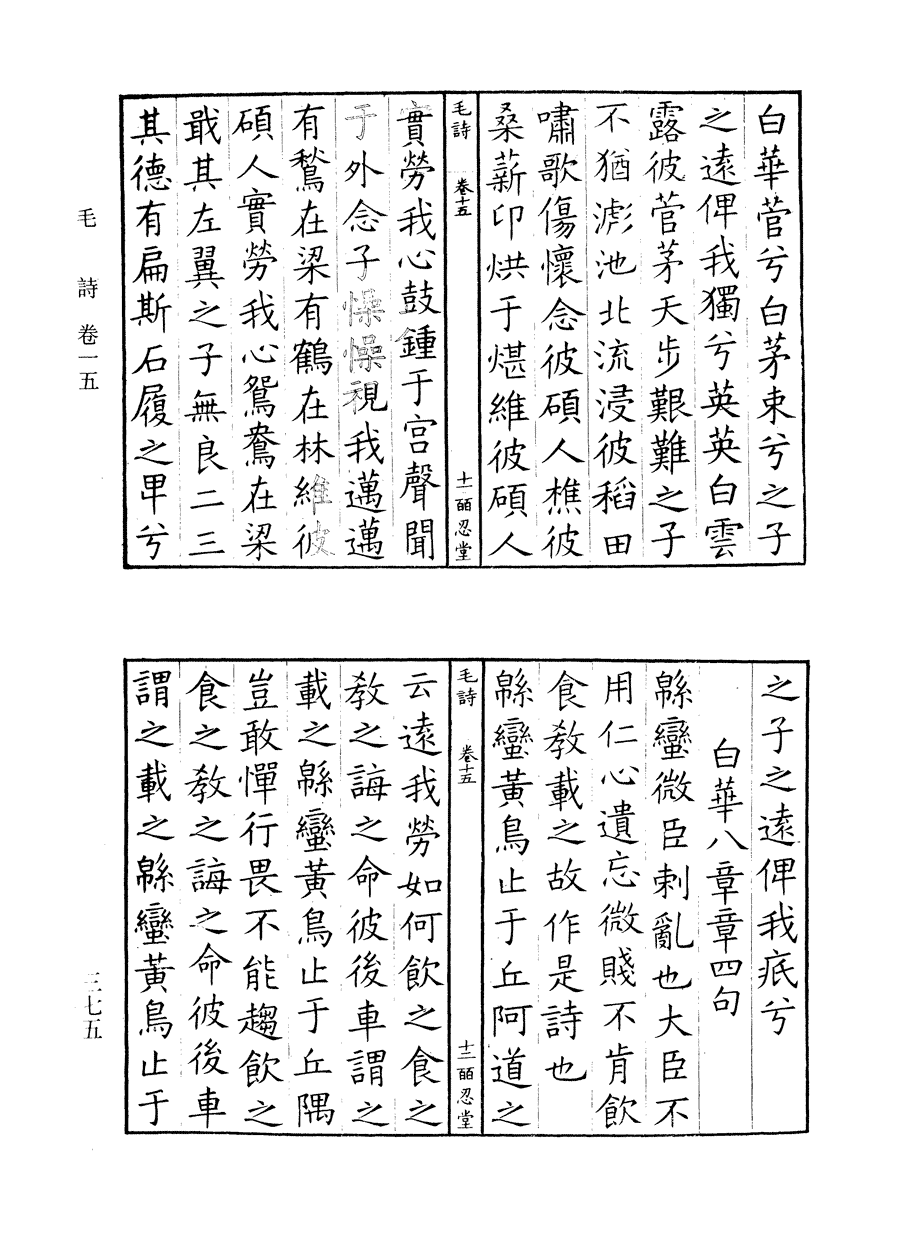 白華菅兮白茅束兮之子
之遠俾我獨兮英英白雲
露彼菅茅天步艱難之子
不猶滮池北流浸彼稻田
嘯歌傷懷念彼碩人樵彼
桑薪卬烘于煁維彼碩人
毛詩 卷十五 十一 皕忍堂
實勞我心鼓鍾于宫聲聞
于外念子懆懆視我邁邁
有鶖在梁有鶴在林維彼
碩人實勞我心鴛鴦在梁
戢其左翼之子無良二三
其德有扁斯石履之卑兮
之子之遠俾我疧兮
白華八章章四句
緜蠻微臣刺亂也大臣不
用仁心遺忘微賤不肯飲
食教載之故作是詩也
緜蠻黃鳥止于丘阿道之
毛詩 卷十五 十二 皕忍堂
云遠我勞如何飲之食之
教之誨之命彼後車謂之
載之緜蠻黃鳥止于丘隅
豈敢憚行畏不能趨飲之
食之教之誨之命彼後車
謂之載之緜蠻黃鳥止于
毛詩 卷一五
三七五